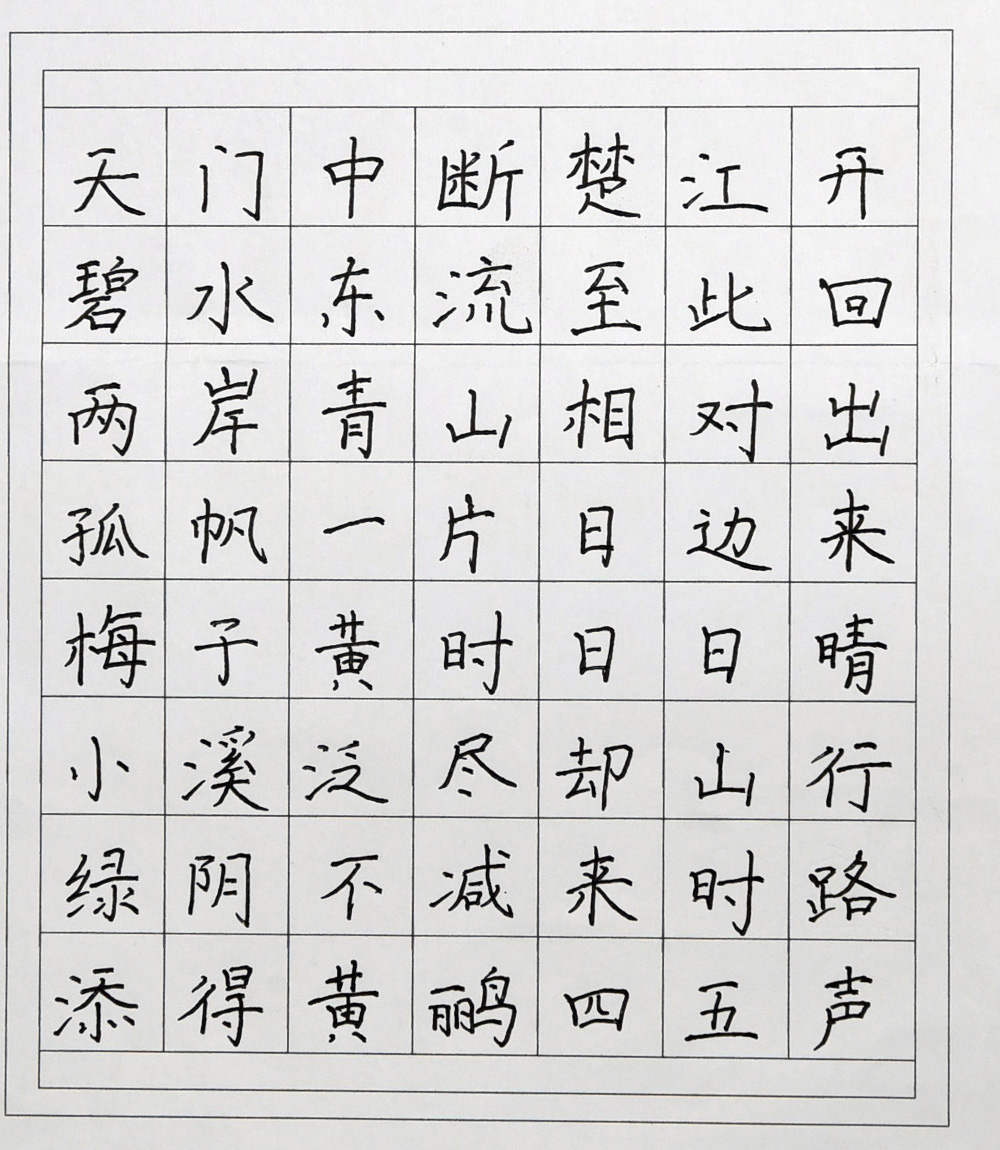 天门中断楚江开
碧水东流至此回
两岸青山相对出
孤帆一片日边来
梅子黄时日日晴
小溪泛尽却山行
绿阴不减来时路
添得黄鹂四五声